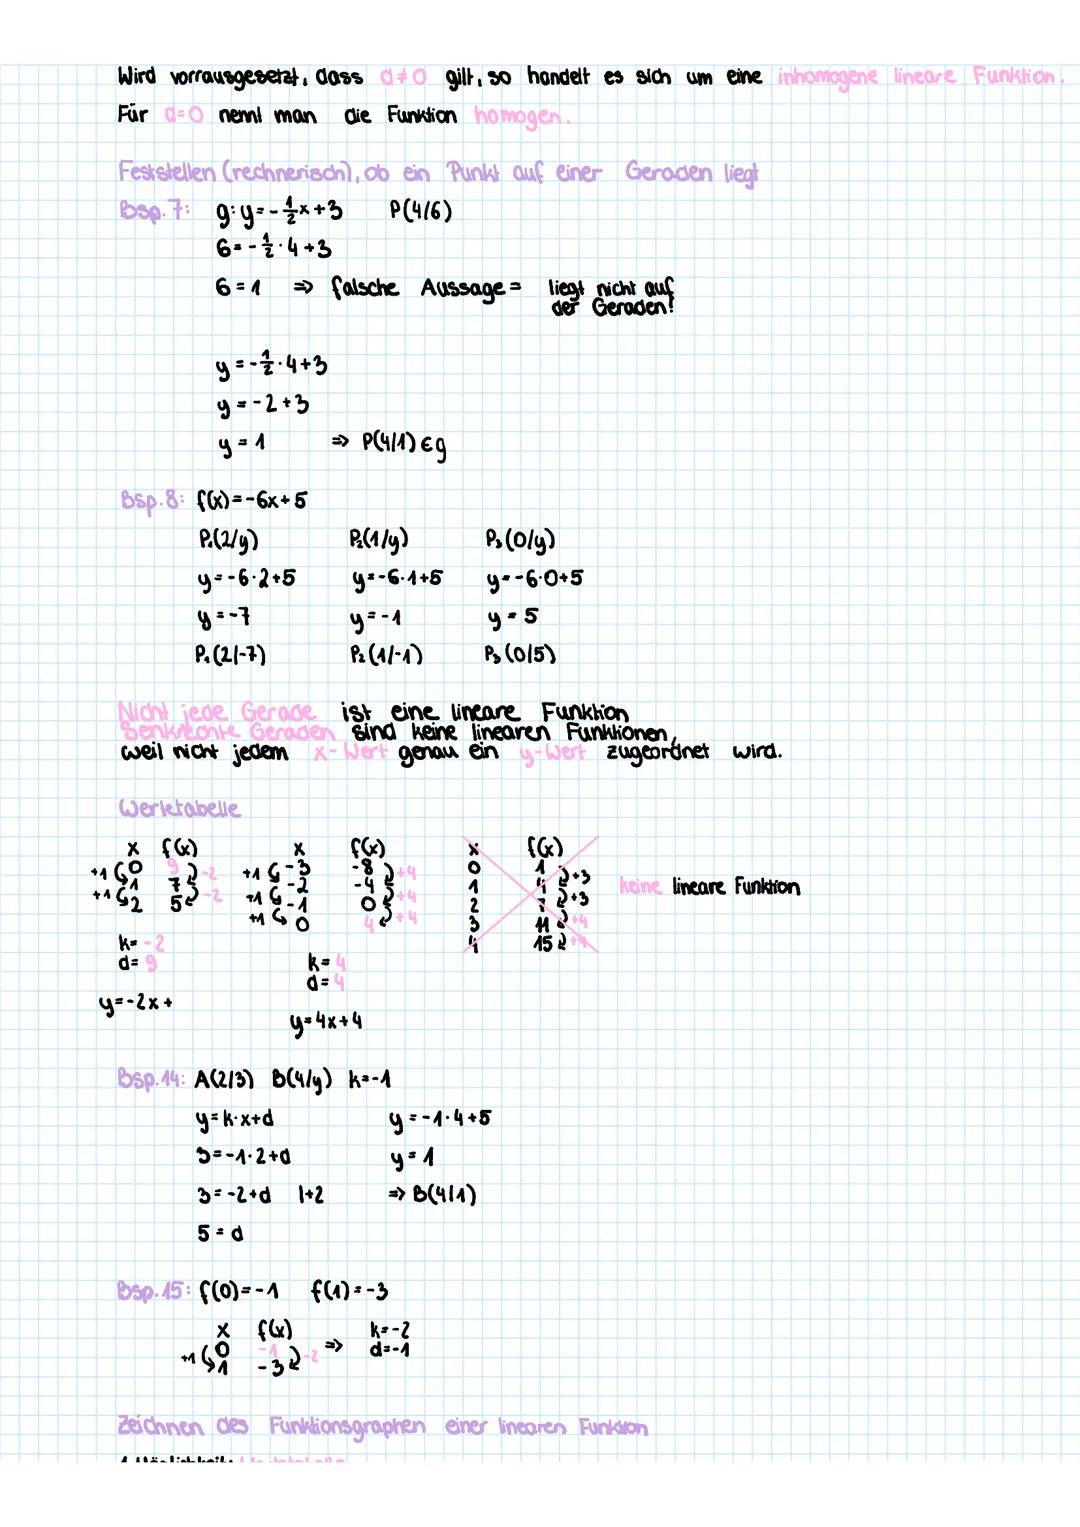 Wird vorrausgesetzt, dass d≠0 gilt, so handelt es sich um eine inhomogene lineare Funktion.
Für d=0 nennt man die Funktion homogen.
Feststellen (rechnerisch), ob ein Punkt auf einer Geraden liegt
Bsp. 7: g: y = -1/2 x + 3 P(4/6)
6 = -1/2 · 4 + 3
6 = 1 => falsche Aussage = liegt nicht auf
der Geraden!
y = -1/2 · 4 + 3
y = -2 + 3
y = 1 => P(4/1) ∈ g
Bsp. 8: f(x) = -6x + 5
P₁(2/y) P₂(1/y) P₃(0/y)
y = -6·2+5 y = -6·1+5 y = -6·0+5
y = -7 y = -1 y = 5
P₁(2/-7) P₂(1/-1) P₃(0/5)
Nicht jede Gerade ist eine lineare Funktion
Senkrechte Geraden sind keine linearen Funktionen,
weil nicht jedem x-Wert genau ein y-Wert zugeordnet wird.
Wertetabelle
x f(x) x f(x) x f(x)
+1 0 9 -2 +1 -3 -8 +4 0 1 +3
+1 1 7 -2 +1 -2 -4 +4 1 4 +3 keine lineare Funktion
2 5 +1 -1 0 +4 2 7 +4
0 4 3 11 +4
4 15
k = -2
d = 9
k = 4
d = 4
y = -2x +
y = 4x + 4
Bsp. 14: A(2/3) B(4/y) k = -1
y = k·x+d y = -1·4+5
3 = -1·2+d y = 1
3 = -2+d |+2 => B(4/1)
5 = d
Bsp. 15: f(0) = -1 f(1) = -3
x f(x) k = -2
+1 0 -1 -2 => d = -1
1 -3
Zeichnen des Funktionsgraphen einer linearen Funktion